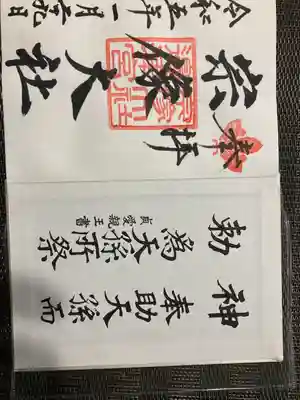 奉拝
宗像大社
令和五年一月二九日
神勅
奉助天孫而
為天孫所祭
貞愛親王書